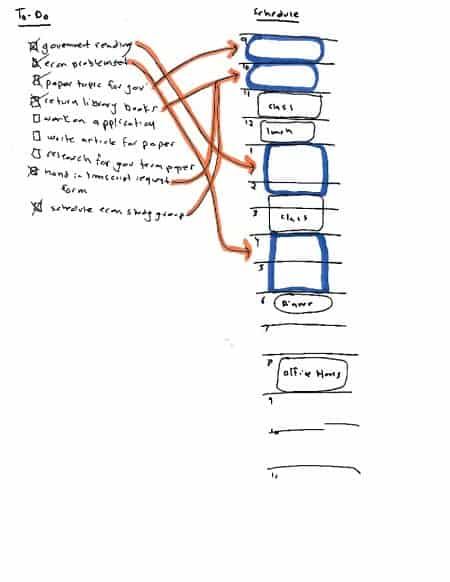 To-Do
government reading
econ problemset
paper topic for gov
return library books
work on application
write article for paper
research for gov term paper
hand in transcript request
form
schedule econ study group
Schedule
9
10
11
class
12
lunch
1
2
3
class
4
5
6
Dinner
7
8
office Hours
9
10
11